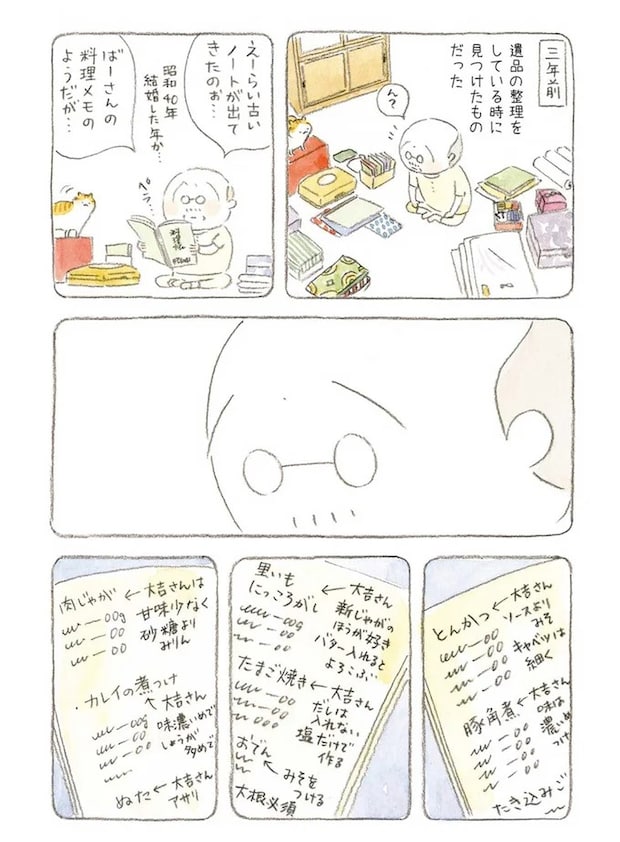 三年前
遺品の整理を
している時に
見つけたもの
だった
ん?
えーらい古い
ノートが出て
きたのぉ…
昭和40年
結婚した年か…
ばーさんの
料理メモの
ようだが…
ペラ…
料理帖
とんかつ←大吉さん
ソースより
みそ
キャベツは
細く
豚角煮←大吉さん
味は
濃いめ
つけ
たき込みご
里いも
にっころがし←大吉さん
新じゃがの
ほうが好き
バター入れると
よろこぶ
たまご焼き←大吉さん
だしは
入れない
塩だけで
作る
おでん
←みそを
つける
大根必須
肉じゃが←大吉さんは
甘味少なく
砂糖より
みりん
・カレイの煮つけ
←大吉さん
味濃いめで
しょうが
多めで
ぬた←大吉さん
アサリ